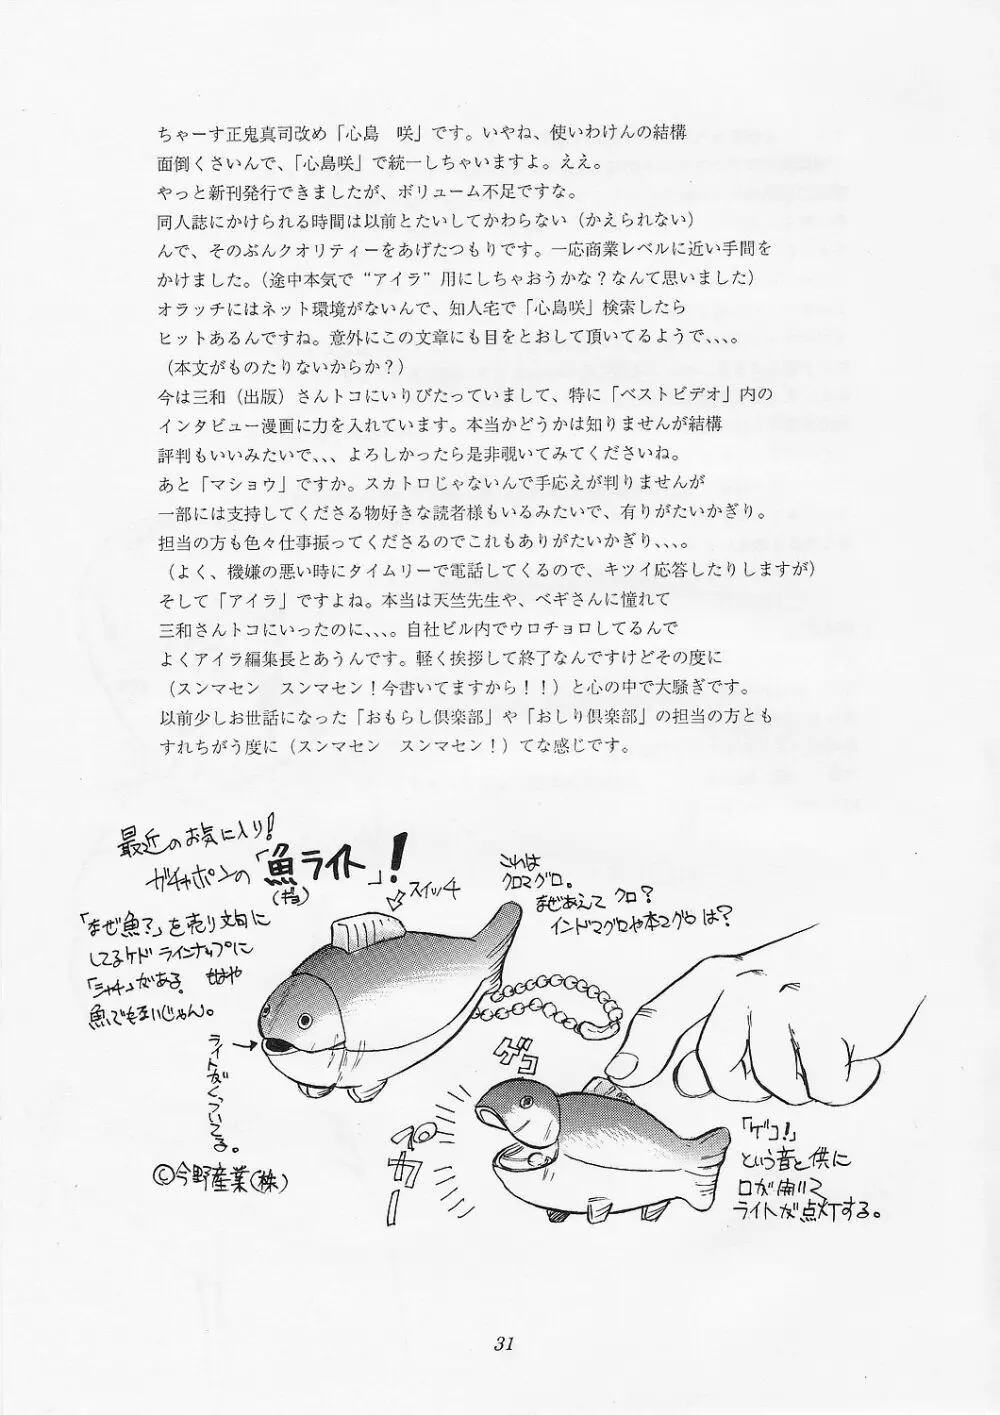 ちゃーす正鬼真司改め「心島　咲」です。いやね、使いわけんの結構
面倒くさいんで、「心島咲」で統一しちゃいますよ。ええ。
やっと新刊発行できましたが、ボリューム不足ですな。
同人誌にかけられる時間は以前とたいしてかわらない（かえられない）
んで、そのぶんクオリティーをあげたつもりです。一応商業レベルに近い手間を
かけました。（途中本気で“アイラ”用にしちゃおうかな？なんて思いました）
オラッチにはネット環境がないんで、知人宅で「心島咲」検索したら
ヒットあるんですね。意外にこの文章にも目をとおして頂いてるようで､､､。
（本文がものたりないからか？）
今は三和（出版）さんトコにいりびたっていまして、特に「ベストビデオ」内の
インタビュー漫画に力を入れています。本当かどうかは知りませんが結構
評判もいいみたいで､､､、よろしかったら是非覗いてみてくださいね。
あと「マショウ」ですか。スカトロじゃないんで手応えが判りませんが
一部には支持してくださる物好きな読者様もいるみたいで、有りがたいかぎり。
担当の方も色々仕事振ってくださるのでこれもありがたいかぎり､､､。
（よく、機嫌の悪い時にタイムリーで電話してくるので、キツイ応答したりしますが）
そして「アイラ」ですよね。本当は天竺先生や、ベギさんに憧れて
三和さんトコにいったのに､､､。自社ビル内でウロチョロしてるんで
よくアイラ編集長とあうんです。軽く挨拶して終了なんですけどその度に
（スンマセン　スンマセン！今書いてますから！！）と心の中で大騒ぎです。
以前少しお世話になった「おもらし倶楽部」や「おしり倶楽部」の担当の方とも
すれちがう度に（スンマセン　スンマセン！）てな感じです。
最近のお気に入り！
ガチャポンの「魚ライト」！
（ギョ）
スイッチ
これは
クロマグロ。
なぜあえて クロ？
インドマグロや本マグロは？
「なぜ魚？」を売り文句に
してるケド ラインナップに
「シャチ」がある。 もはや
魚でもないじゃん。
ライトがくっついてる。
©今野産業（株）
ゲコ
カー
「ゲコ！」
という音と供に
口が開いて
ライトが点灯する。
31